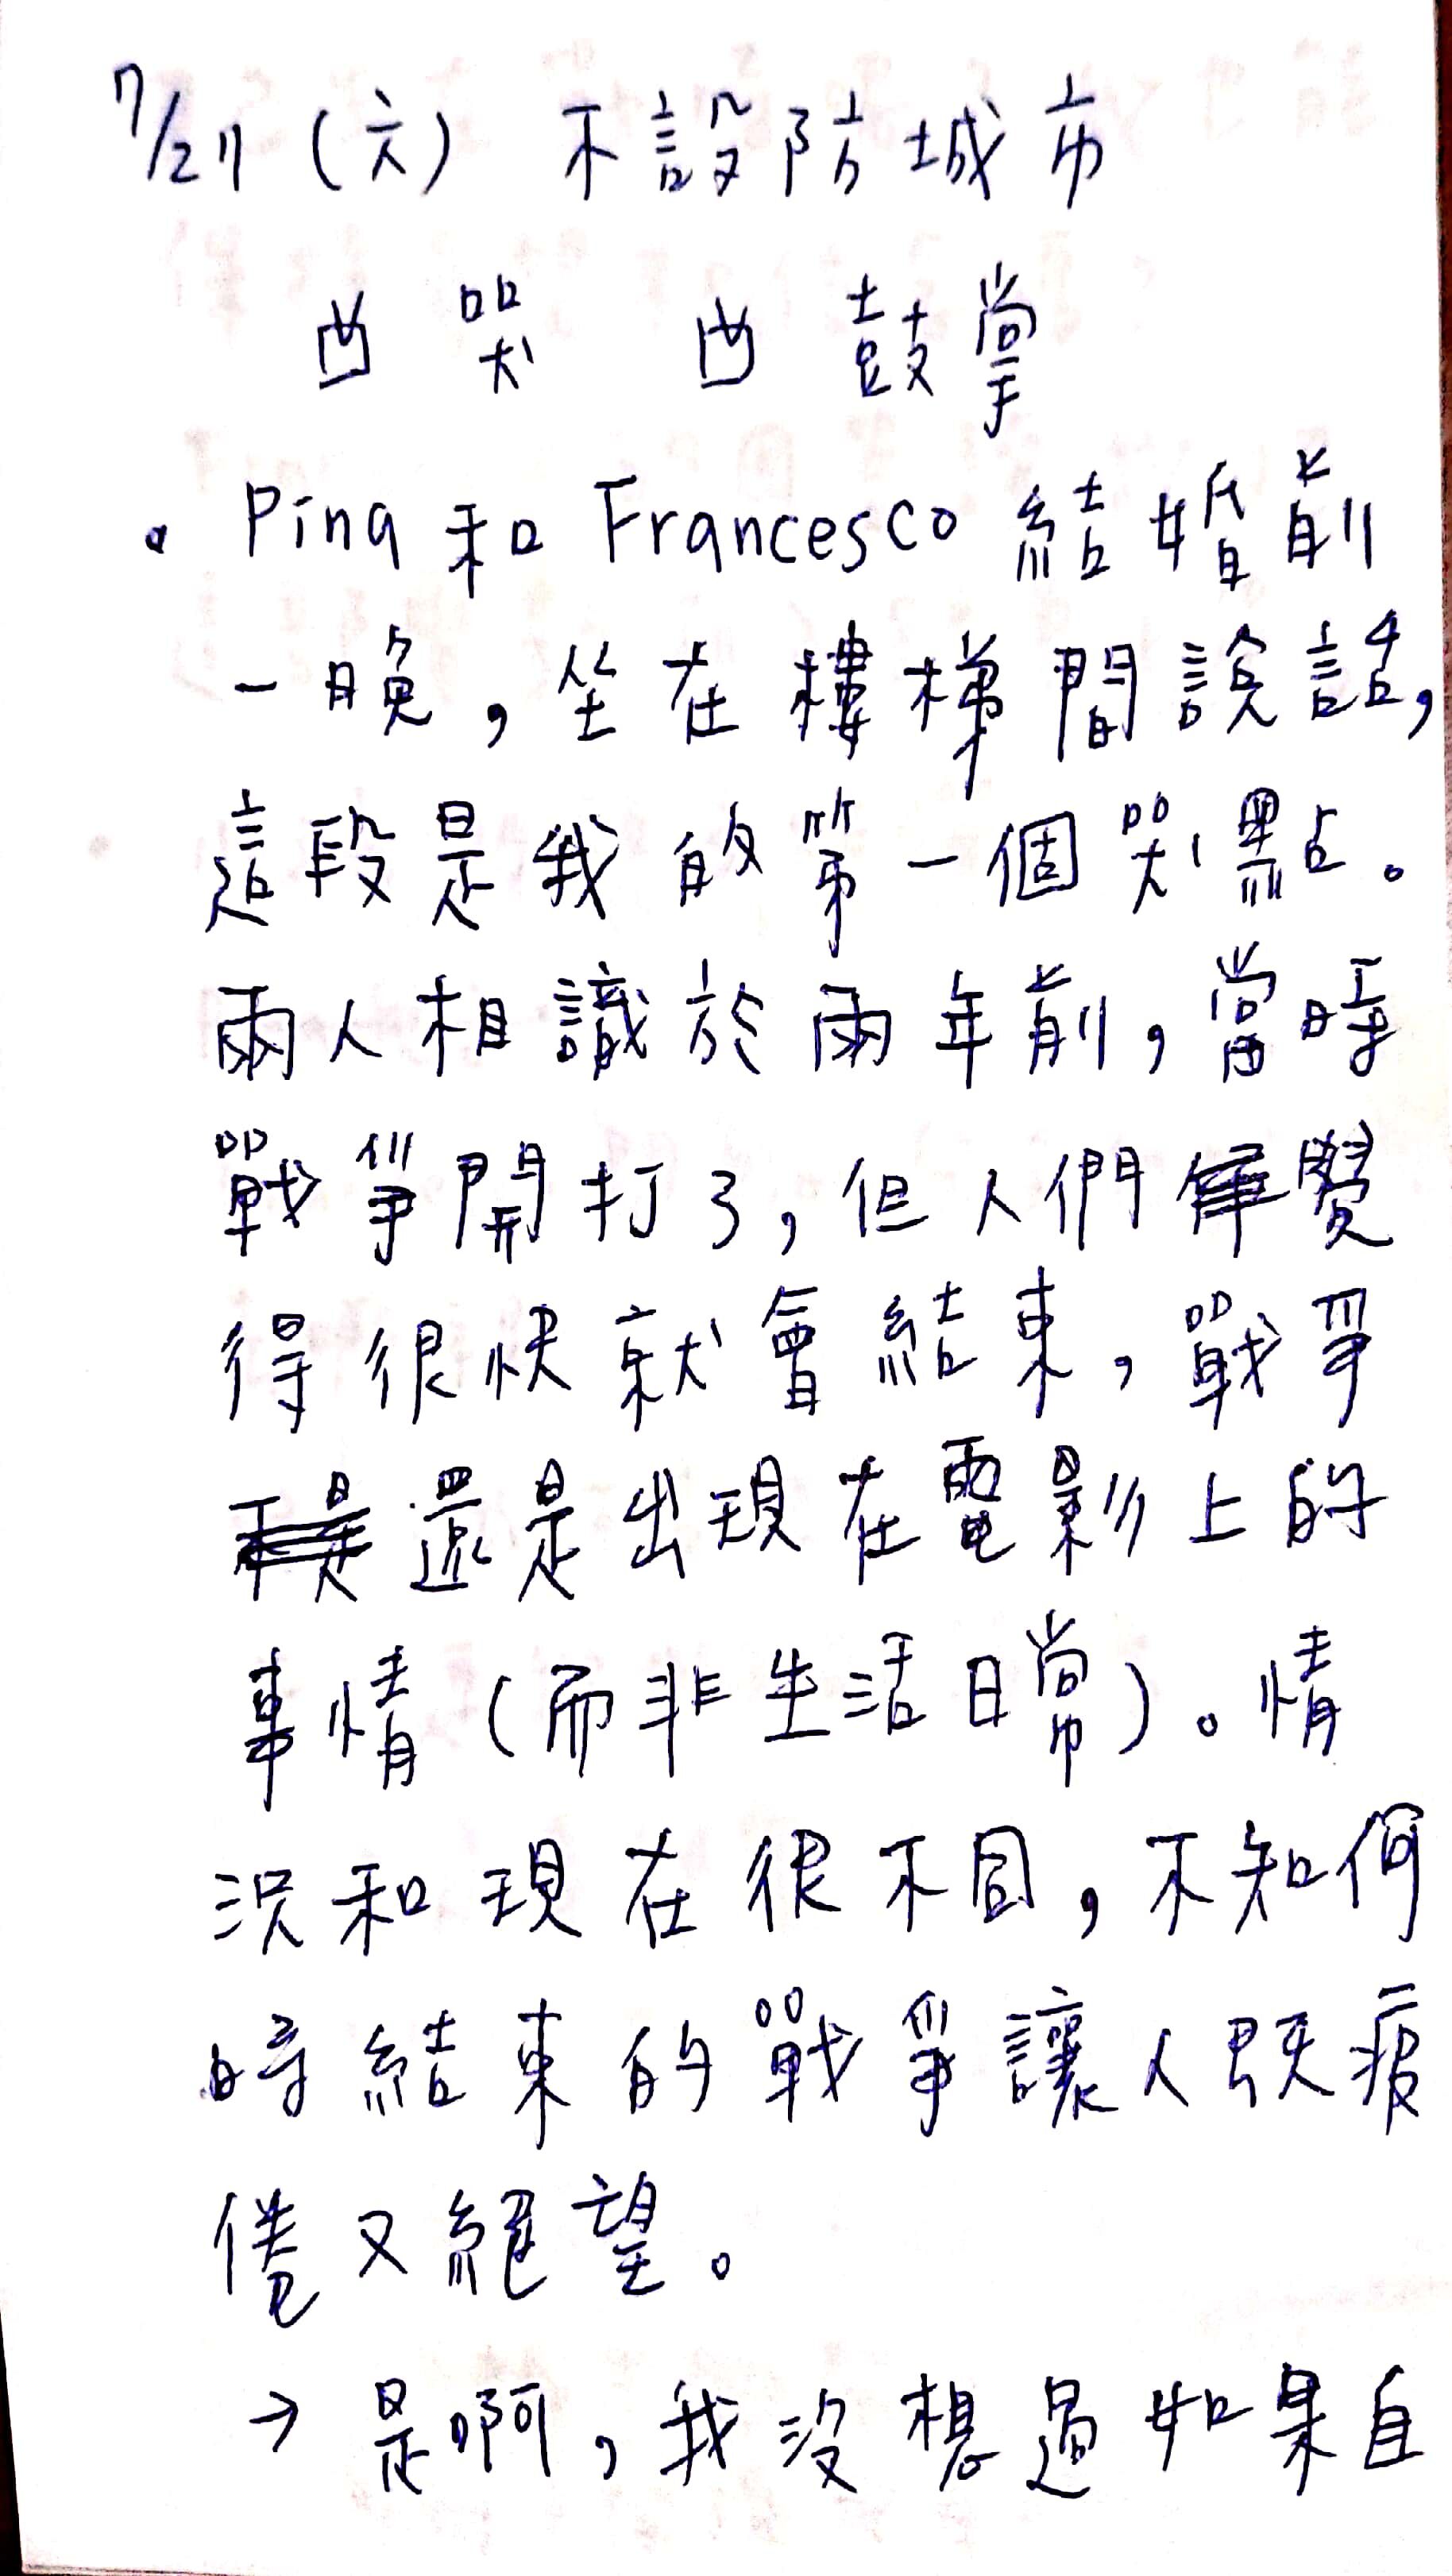 7/27 (六) 不設防城市
凹哭 凹鼓掌
• Pina 和 Francesco 結婚前
一晚，坐在樓梯間談話，
這段是我的第一個哭點。
兩人相識於兩年前，當時
戰爭開打了，但人們覺
得很快就會結束，戰爭
不是還是出現在電影上的
事情（而非生活日常）。情
況和現在很不同，不知何
時結束的戰爭讓人既疲
倦又絕望。
→ 是啊，我沒想過如果自